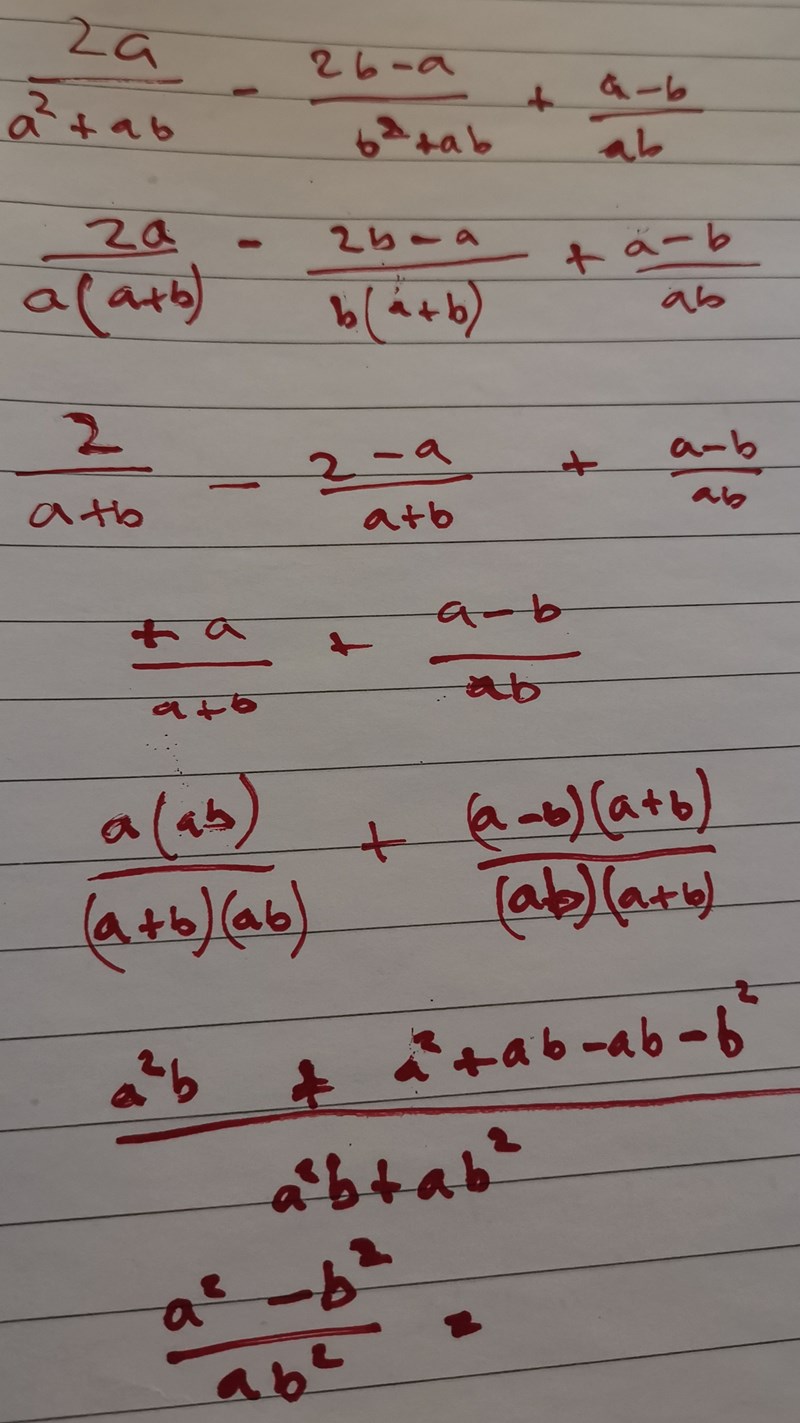 2a/(a²+ab) - (2b-a)/(b²+ab) + (a-b)/(ab)
2a/(a(a+b)) - (2b-a)/(b(a+b)) + (a-b)/(ab)
2/(a+b) - (2-a)/(a+b) + (a-b)/(ab)
+a/(a+b) + (a-b)/(ab)
a(ab)/((a+b)(ab)) + (a-b)(a+b)/((ab)(a+b))
(a²b + a²+ab-ab-b²)/(a²b+ab²)
(a²-b²)/(ab²) =